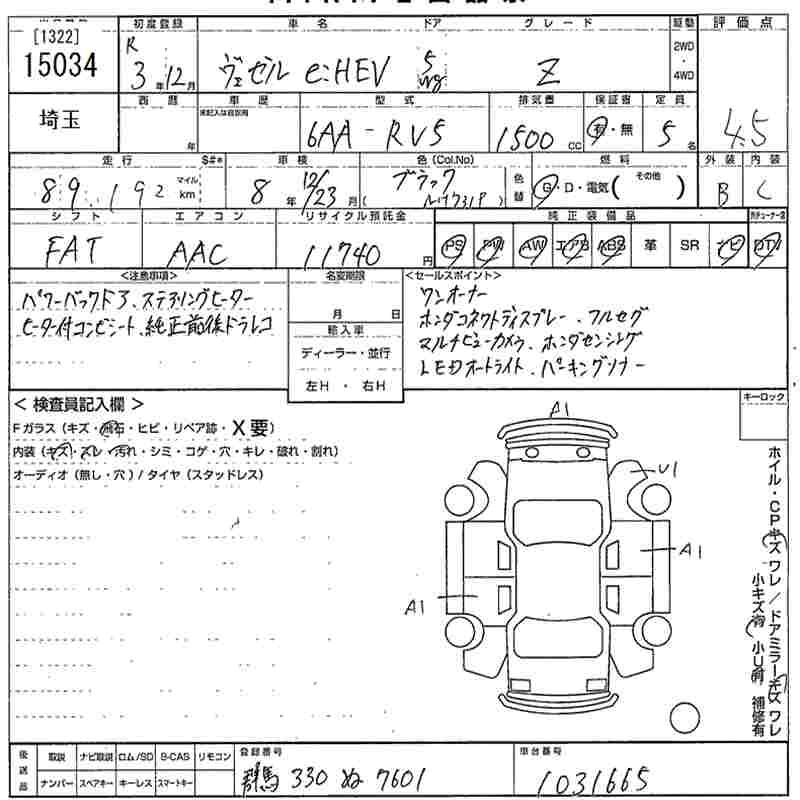 [1322]
15034
初度登録
R
3年12月
車名
ヴェゼル e:HEV
ドア
5
Wg
グレード
Z
駆動
2WD
・
4WD
評価点
4.5
埼玉
西暦
年
車歴
未記入は自家用
型式
6AA-RV5
排気量
1500cc
保証書
有・無
定員
5名
走行
89,192
マイル
km
S#*
車検
8年12/23月
色(Col.No)
ブラック
色替
燃料
G・D・電気(その他)
外装
B
内装
C
シフト
FAT
エアコン
AAC
リサイクル預託金
11740円
純正装備品
PS PW AW エアB ABS 革 SR ナビ DTV
<注意事項>
パワーバックドア、ステアリングヒーター
ヒーター付コンビシート、純正前後ドラレコ
名変期限
月 日
輸入車
ディーラー・並行
左H・右H
<セールスポイント>
ワンオーナー
ホンダコネクトディスプレー、フルセグ
マルチビューカメラ、ホンダセンシング
LEDオートライト、パーキングソナー
キーロック
<検査員記入欄>
Fガラス(キズ・飛石・ヒビ・リペア跡・X要)
内装(キズ・スレ・汚れ・シミ・コゲ・穴・キレ・破れ・割れ)
オーディオ(無し・穴)/タイヤ(スタッドレス)
A1
U1
A1
A1
ホイル・CPキズワレ/ドアミラーキズワレ
小キズ有 小U有 補修有
後送品
取説 ナビ取説 ロム/SD B-CAS リモコン
ナンバー スペアキー キーレス スマートキー
登録番号
群馬 330 ぬ 7601
車台番号
1031665